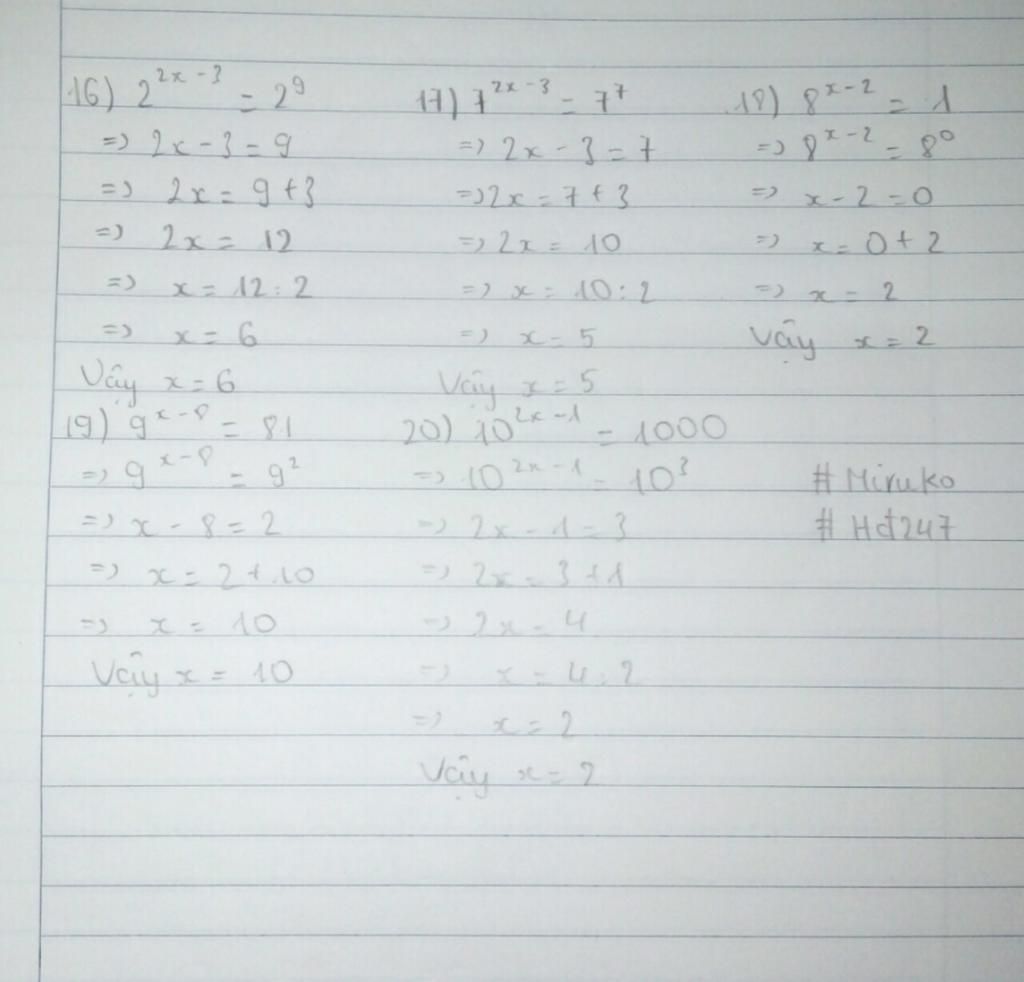 16) 2^{2x-3} = 2^9
=> 2x - 3 = 9
=> 2x = 9 + 3
=> 2x = 12
=> x = 12 : 2
=> x = 6
Vậy x = 6
17) 7^{2x-3} = 7^7
=> 2x - 3 = 7
=> 2x = 7 + 3
=> 2x = 10
=> x = 10 : 2
=> x = 5
Vậy x = 5
18) 8^{x-2} = 1
=> 8^{x-2} = 8^0
=> x - 2 = 0
=> x = 0 + 2
=> x = 2
Vậy x = 2
19) 9^{x-8} = 81
=> 9^{x-8} = 9^2
=> x - 8 = 2
=> x = 2 + 10
=> x = 10
Vậy x = 10
20) 10^{2x-1} = 1000
=> 10^{2x-1} = 10^3
=> 2x - 1 = 3
=> 2x = 3 + 1
=> 2x = 4
=> x = 4 : 2
=> x = 2
Vậy x = 2
# Miruko
# Hđ247